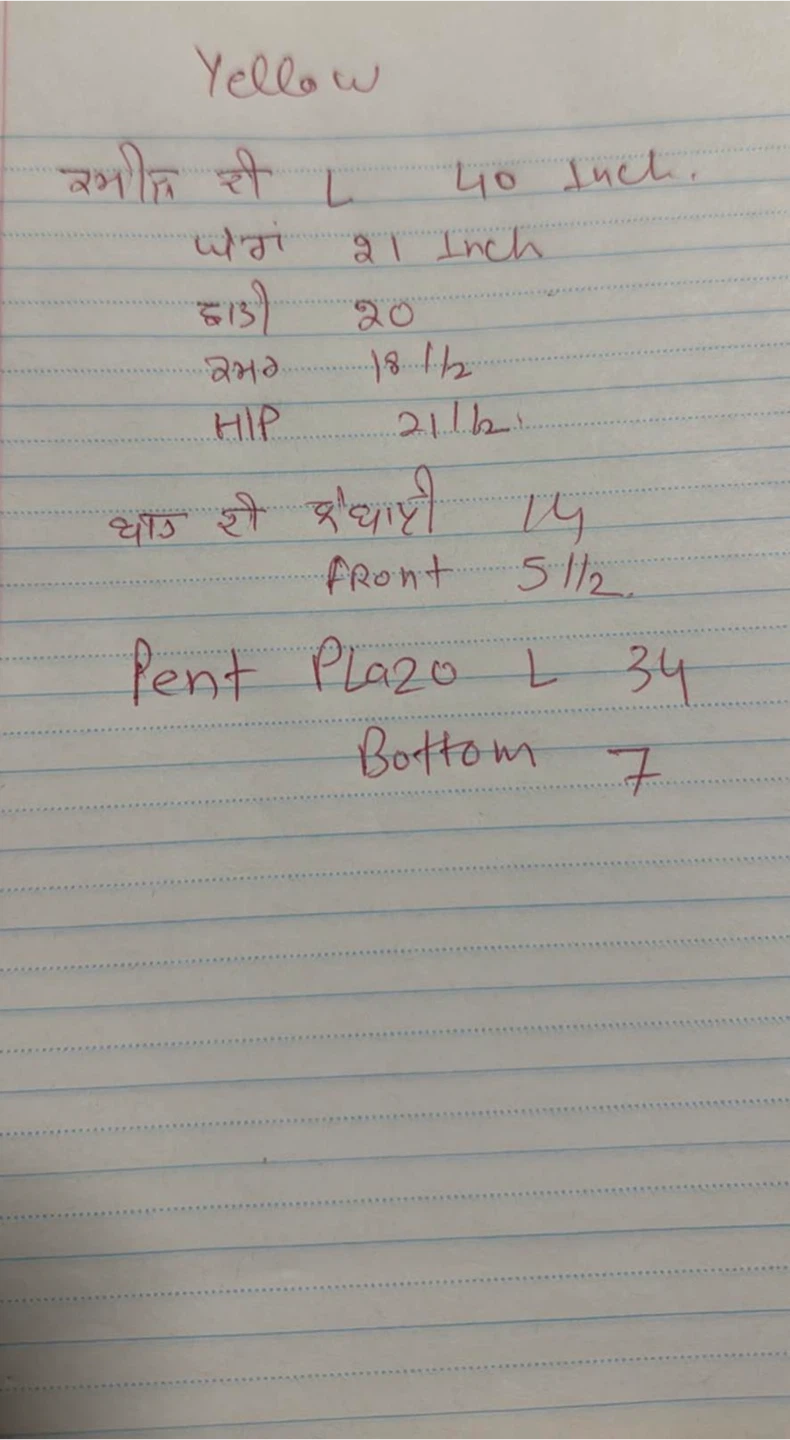 Yellow
ਕਮੀਜ਼ ਦੀ L 40 Inch.
ਘੇਰਾ 21 Inch
ਛਾਤੀ 20
ਕਮਰ 18 1/2
HIP 21 1/2
ਦੀ 14
FRont 5 1/2.
Pent PLazo L 34
Bottom 7